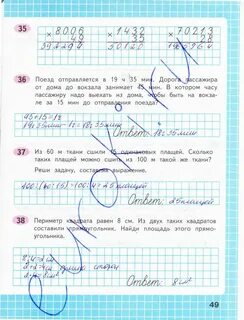 35
×8006
49
392294
×1432
35
50120
×70213
28
1965964
36
Поезд отправляется в 19 ч 35 мин. Дорога пассажира
от дома до вокзала занимает 45 мин. В котором часу
пассажиру надо выехать из дома, чтобы быть на вокза-
ле за 15 мин до отправления поезда?
45+15=12
Ответ: 18ч 35мин
37
Из 60 м ткани сшили 15 одинаковых плащей. Сколько
таких плащей можно сшить из 100 м такой же ткани?
Реши задачу, составляя выражение.
100:(60:15)=100:4=25плащей
Ответ: 25плащей
38
Периметр квадрата равен 8 см. Из двух таких квадратов
составили прямоугольник. Найди площадь этого прямо-
угольника.
8:4=2см
Ответ: 8см²
49